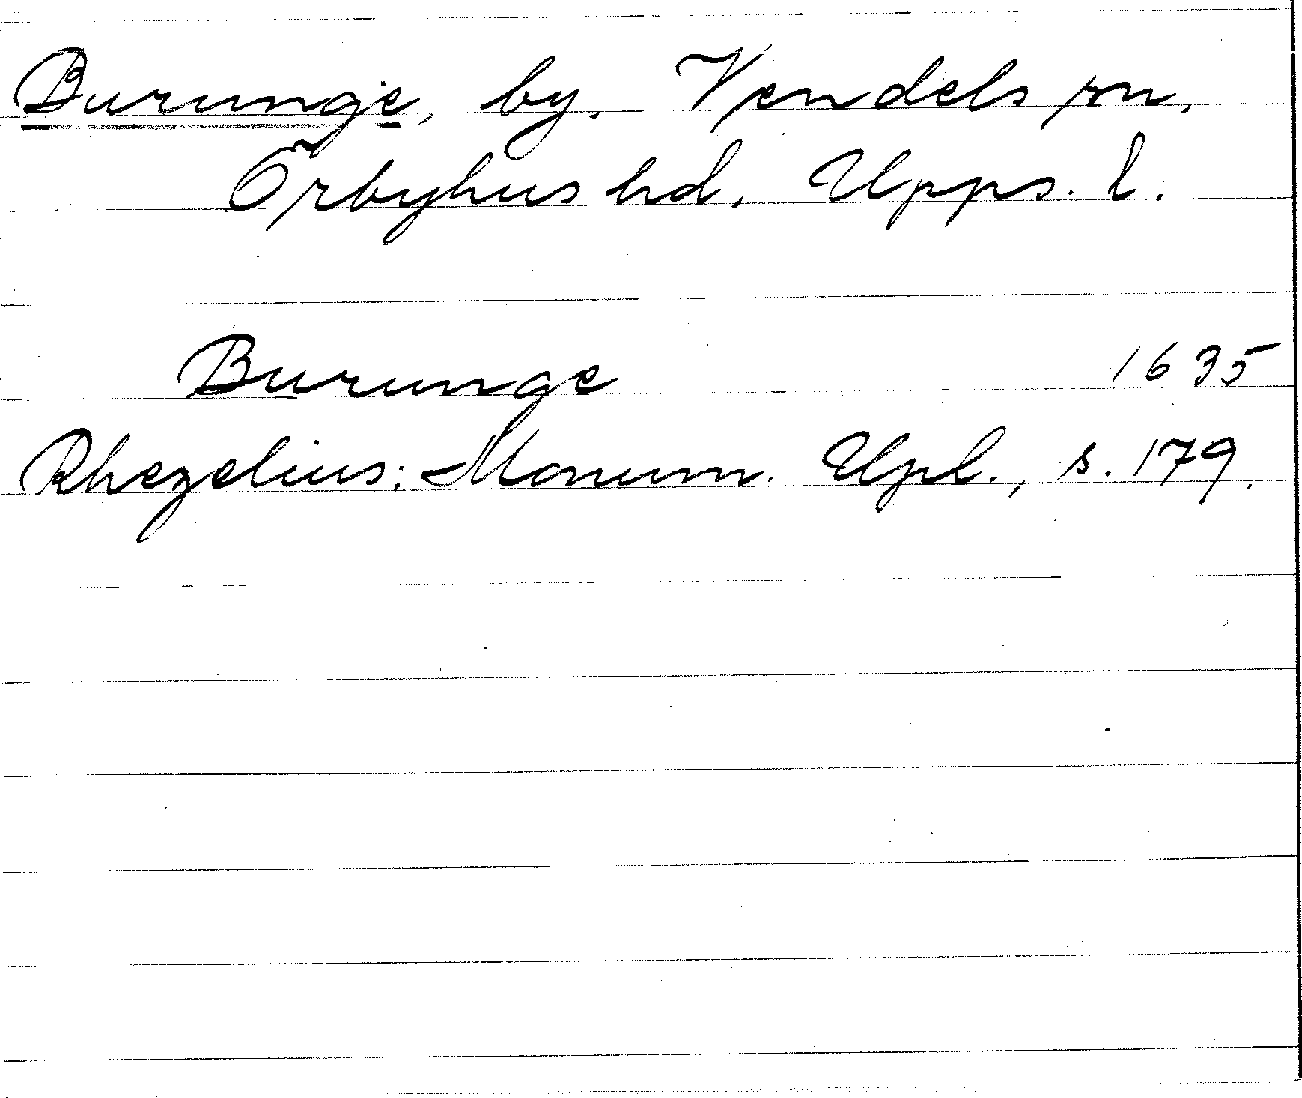 Burunge, by, Vendels sn,
Örbyhus hd, Upps. l.
Burunge 1635
Rhezelius: Monum. Upl., s. 179.